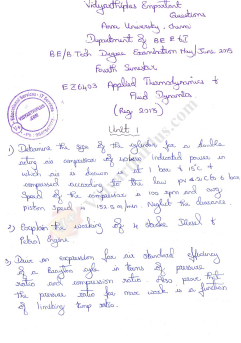 Vidyarthiplus Important
Questions
Anna University, Chennai
Department of BE EEE
BE/B.Tech Degree Examination May/June 2015
Fourth Semester
Applied Thermodynamics &
Fluid Dynamics
(Reg 2013)
Unit 1
1) Determine the size of the cylinder for a double
acting air compressor of indicated power in
which air is drawn in at 1 bar & 15°C &
compressed according to the law
Speed of the compressor is 100 rpm and avg
piston speed is 152.5 m/min. Neglect the clearance
2) Explain the working of 4 stroke Diesel &
Petrol Engine
3) Derive an expression for air standard efficiency
of a Brayton cycle in terms of pressure
ratio and compression ratio. Also prove that
the pressure ratio for max work is a function
of limiting temp ratio.